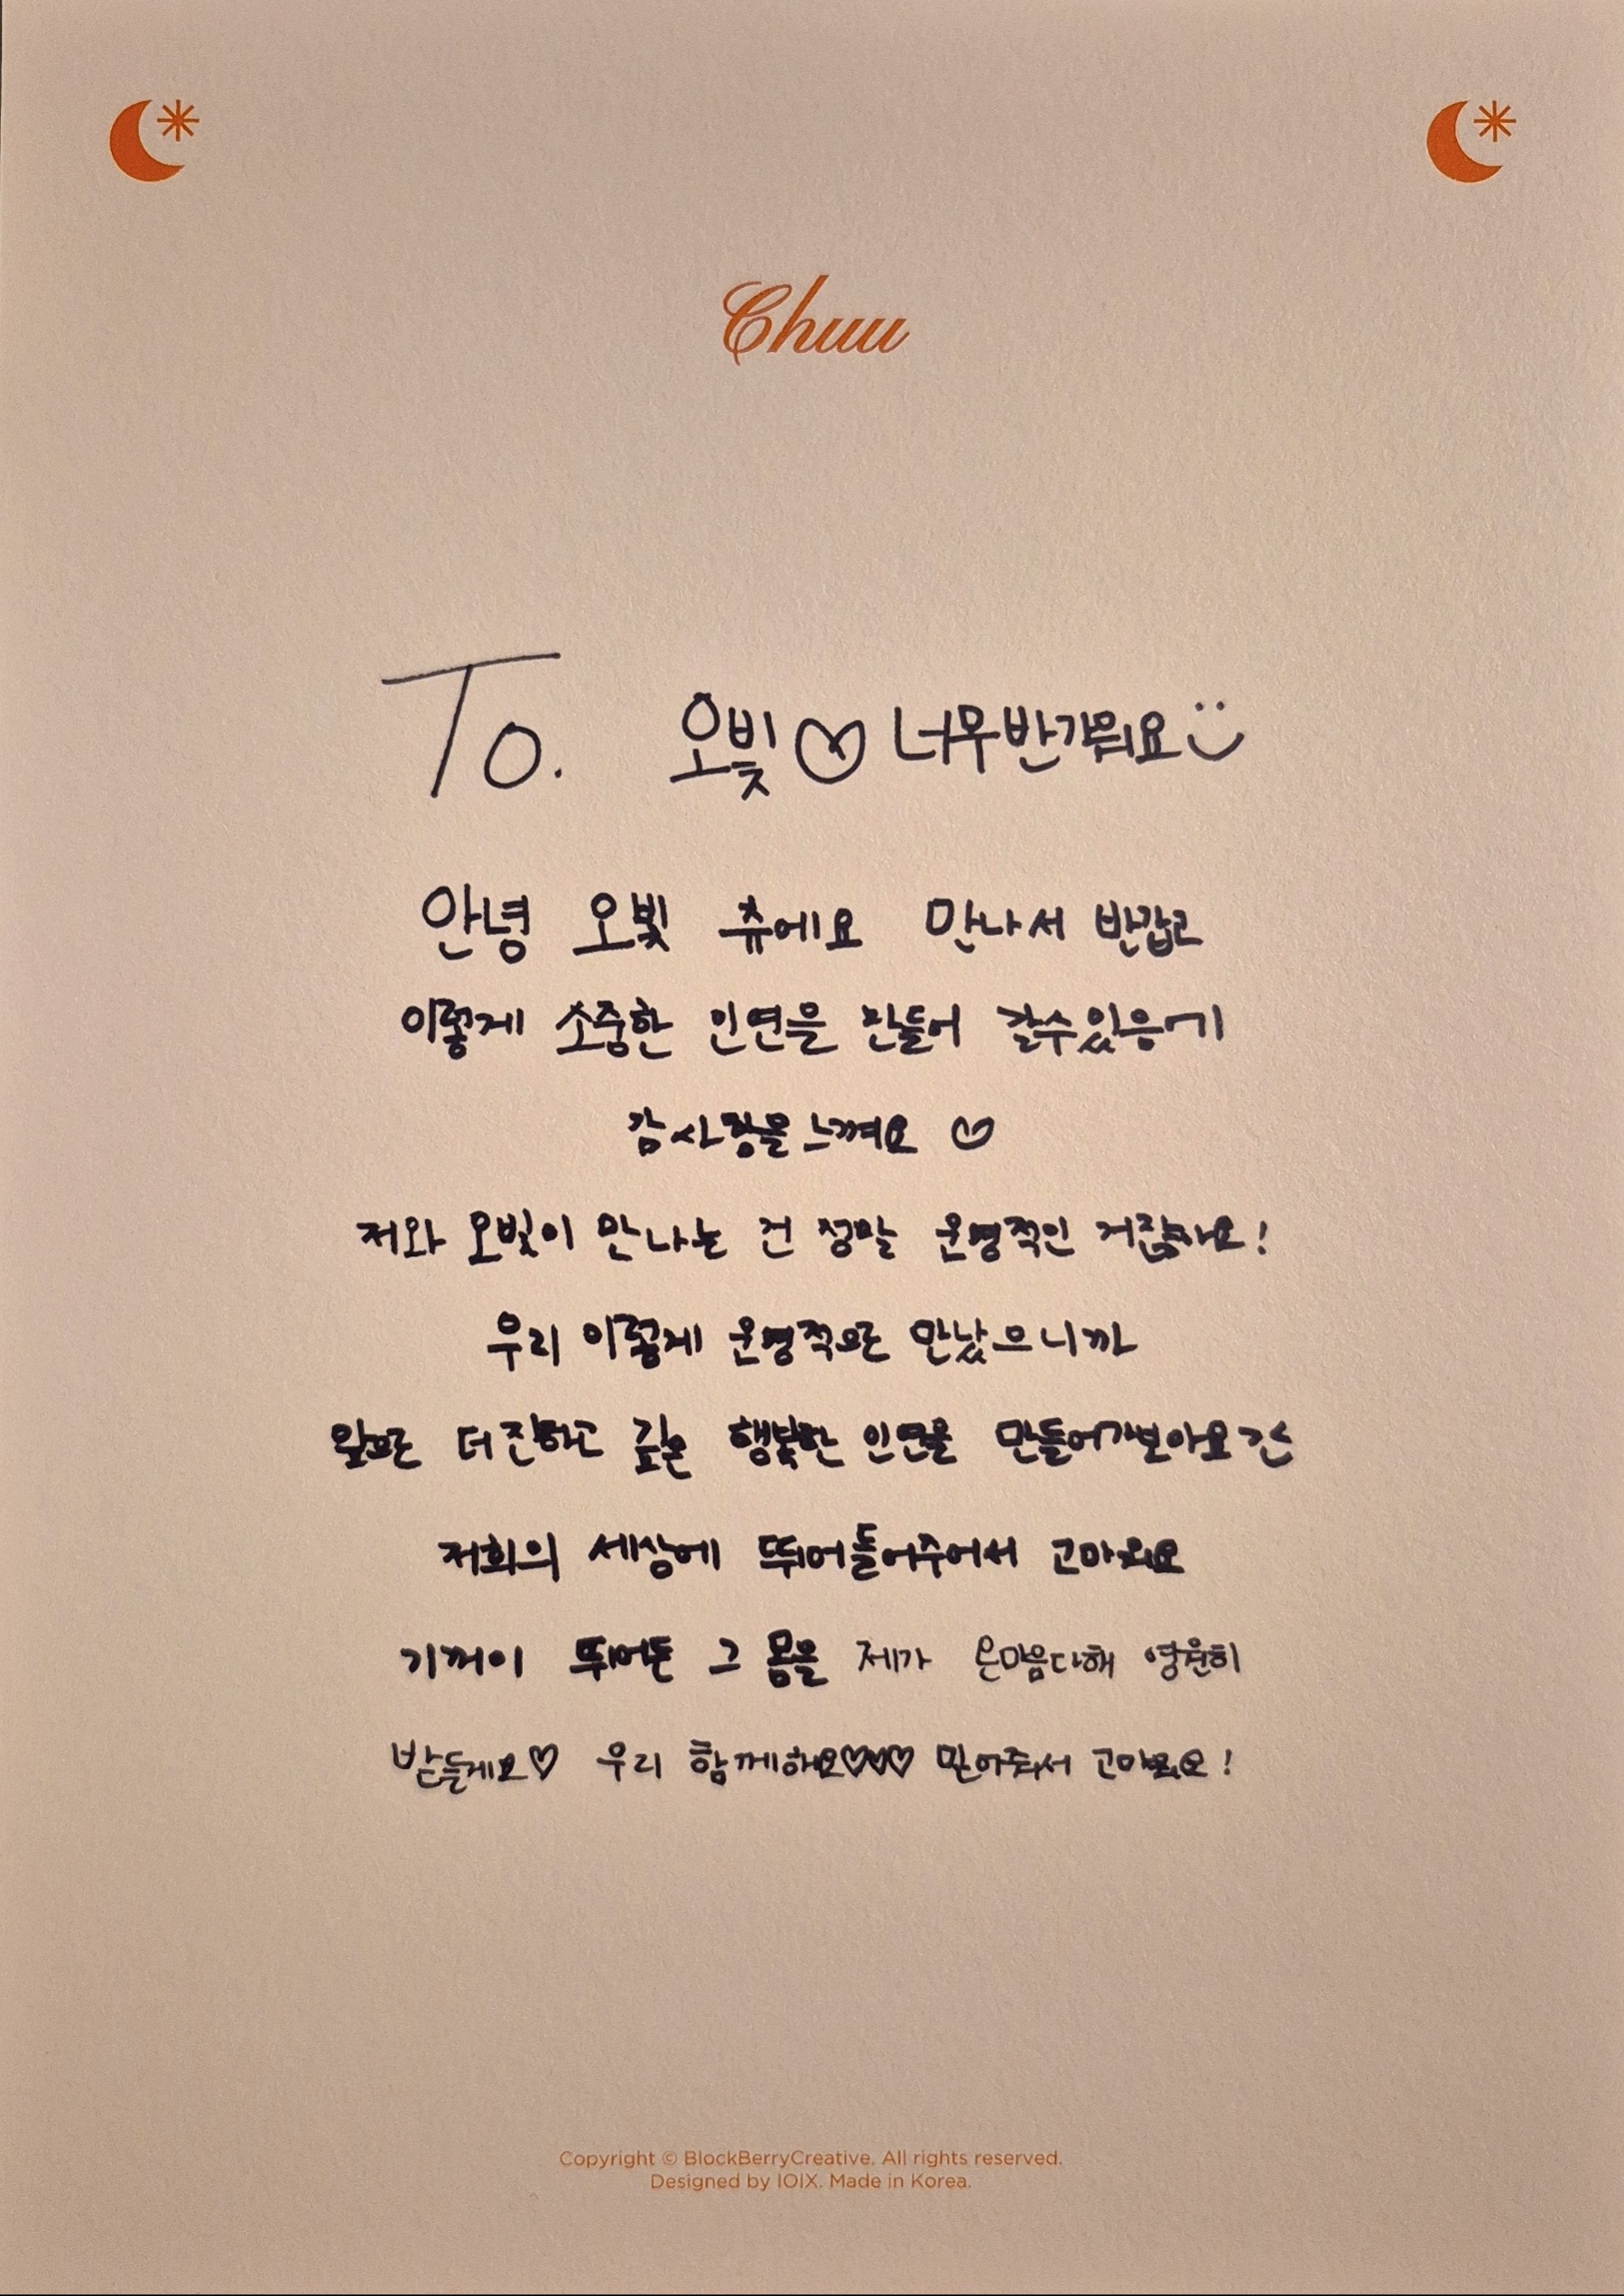 Chuu
To. 오빛♡ 너무반가워요
안녕 오빛 츄에요 만나서 반갑고
이렇게 소중한 인연을 만들어 갈수있음에
감사함을 느껴요 ♡
저와 오빛이 만나는 건 정말 운명적인 거잖아요!
우리 이렇게 운명적으로 만났으니까
앞으로 더 진하고 깊은 행복한 인연을 만들어가보아요
저희의 세상에 뛰어들어주어서 고마워요
기꺼이 뛰어든 그 몸을 제가 온마음다해 영원히
받들게요♡ 우리 함께해요♡♡♡ 믿어줘서 고마워요!
Copyright © BlockBerryCreative. All rights reserved.
Designed by IOIX. Made in Korea.